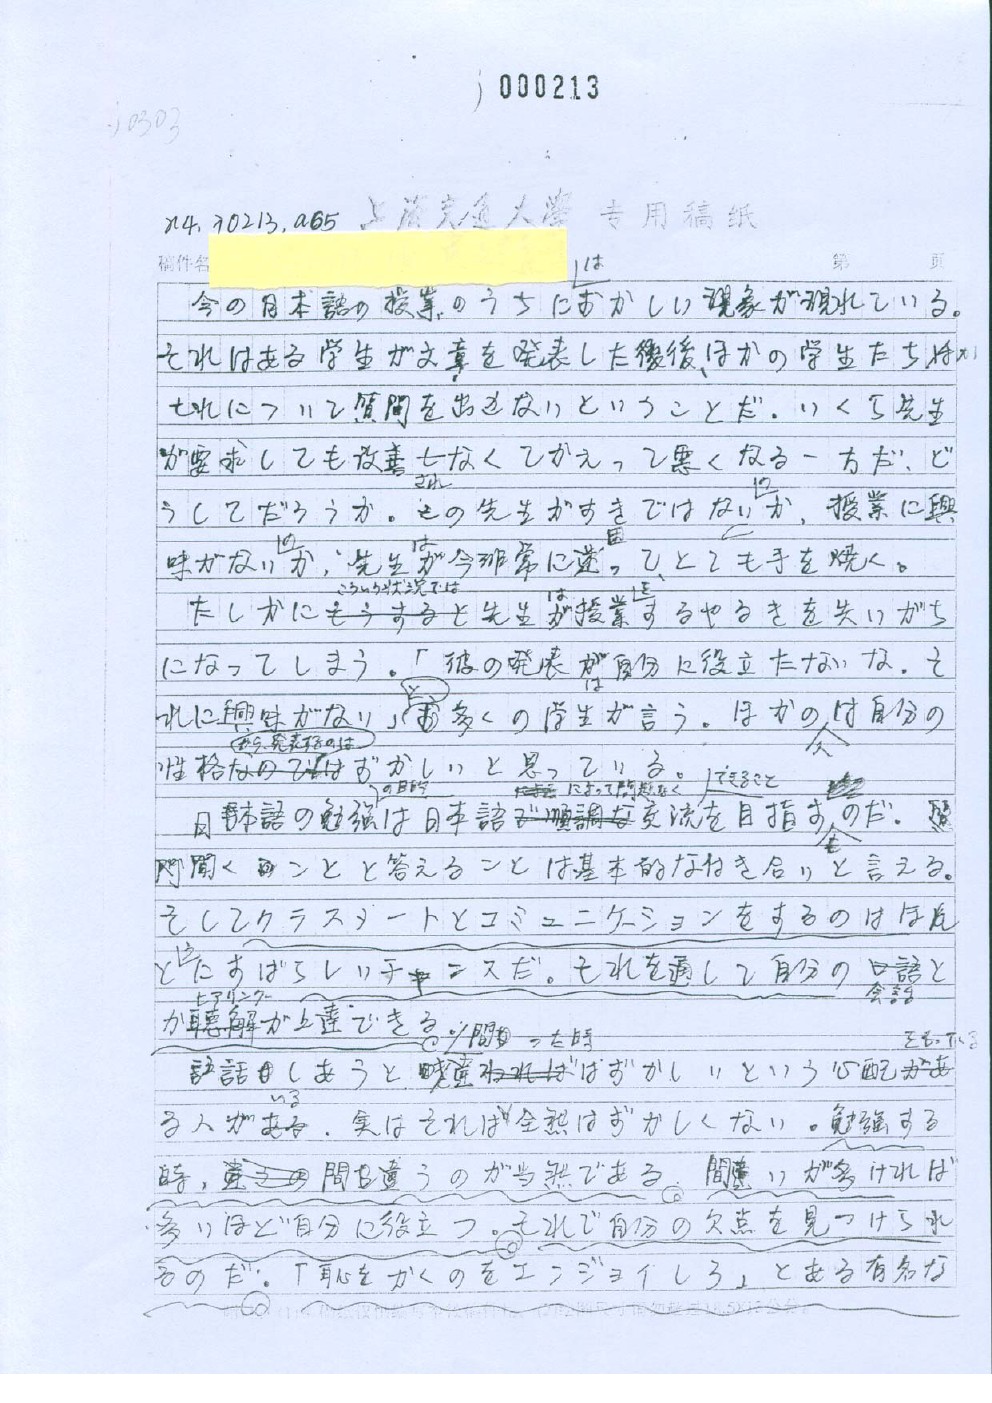 000213
j0303
n4.j0213.a65 上海交通大學 专用稿纸
稿件名 第 页
は
今の日本語の授業のうちにおかしい現象が現れている。
それはある学生が文章を発表した後、ほかの学生たちは
それについて質問を出せないということだ。いくら先生
が要求しても改善しなくてかえって悪くなる一方だ、ど
され の
うしてだろうか。その先生がすきではないか、授業に興
の は 困
味がないか、先生が今非常に迷って、とても手を焼く。
こういう状況では は を
たしかにもうすると先生が授業するやるきを失いがち
になってしまう。「彼の発表が自分に役立たないな。そ
と は
れに興味がない」も多くの学生が言う。ほかのは自分の
から、発表するのは 人
性格なのではずかしいと思っている。
の目的 によって問題なく できること
日本語の勉強は日本語で順調な交流を目指すのだ。質
も
問聞くことと答えることは基本的なねき合いと言える。
そしてクラスメートとコミュニケーションをするのはほん
う
とにすばらしいチャンスだ。それを通して自分の口語と
ヒアリング 会話
か聴解が上達できる。
間違った時 をもっている
話しあうと間違わればはずかしいという心配があ
いる
る人がある。実はそれは全然はずかしくない。勉強する
時、間違うのが当然である。間違いが多ければ
多いほど自分に役立つ。それで自分の欠点を見つけられ
るのだ。「恥をかくのをエンジョイしろ」とある有名な